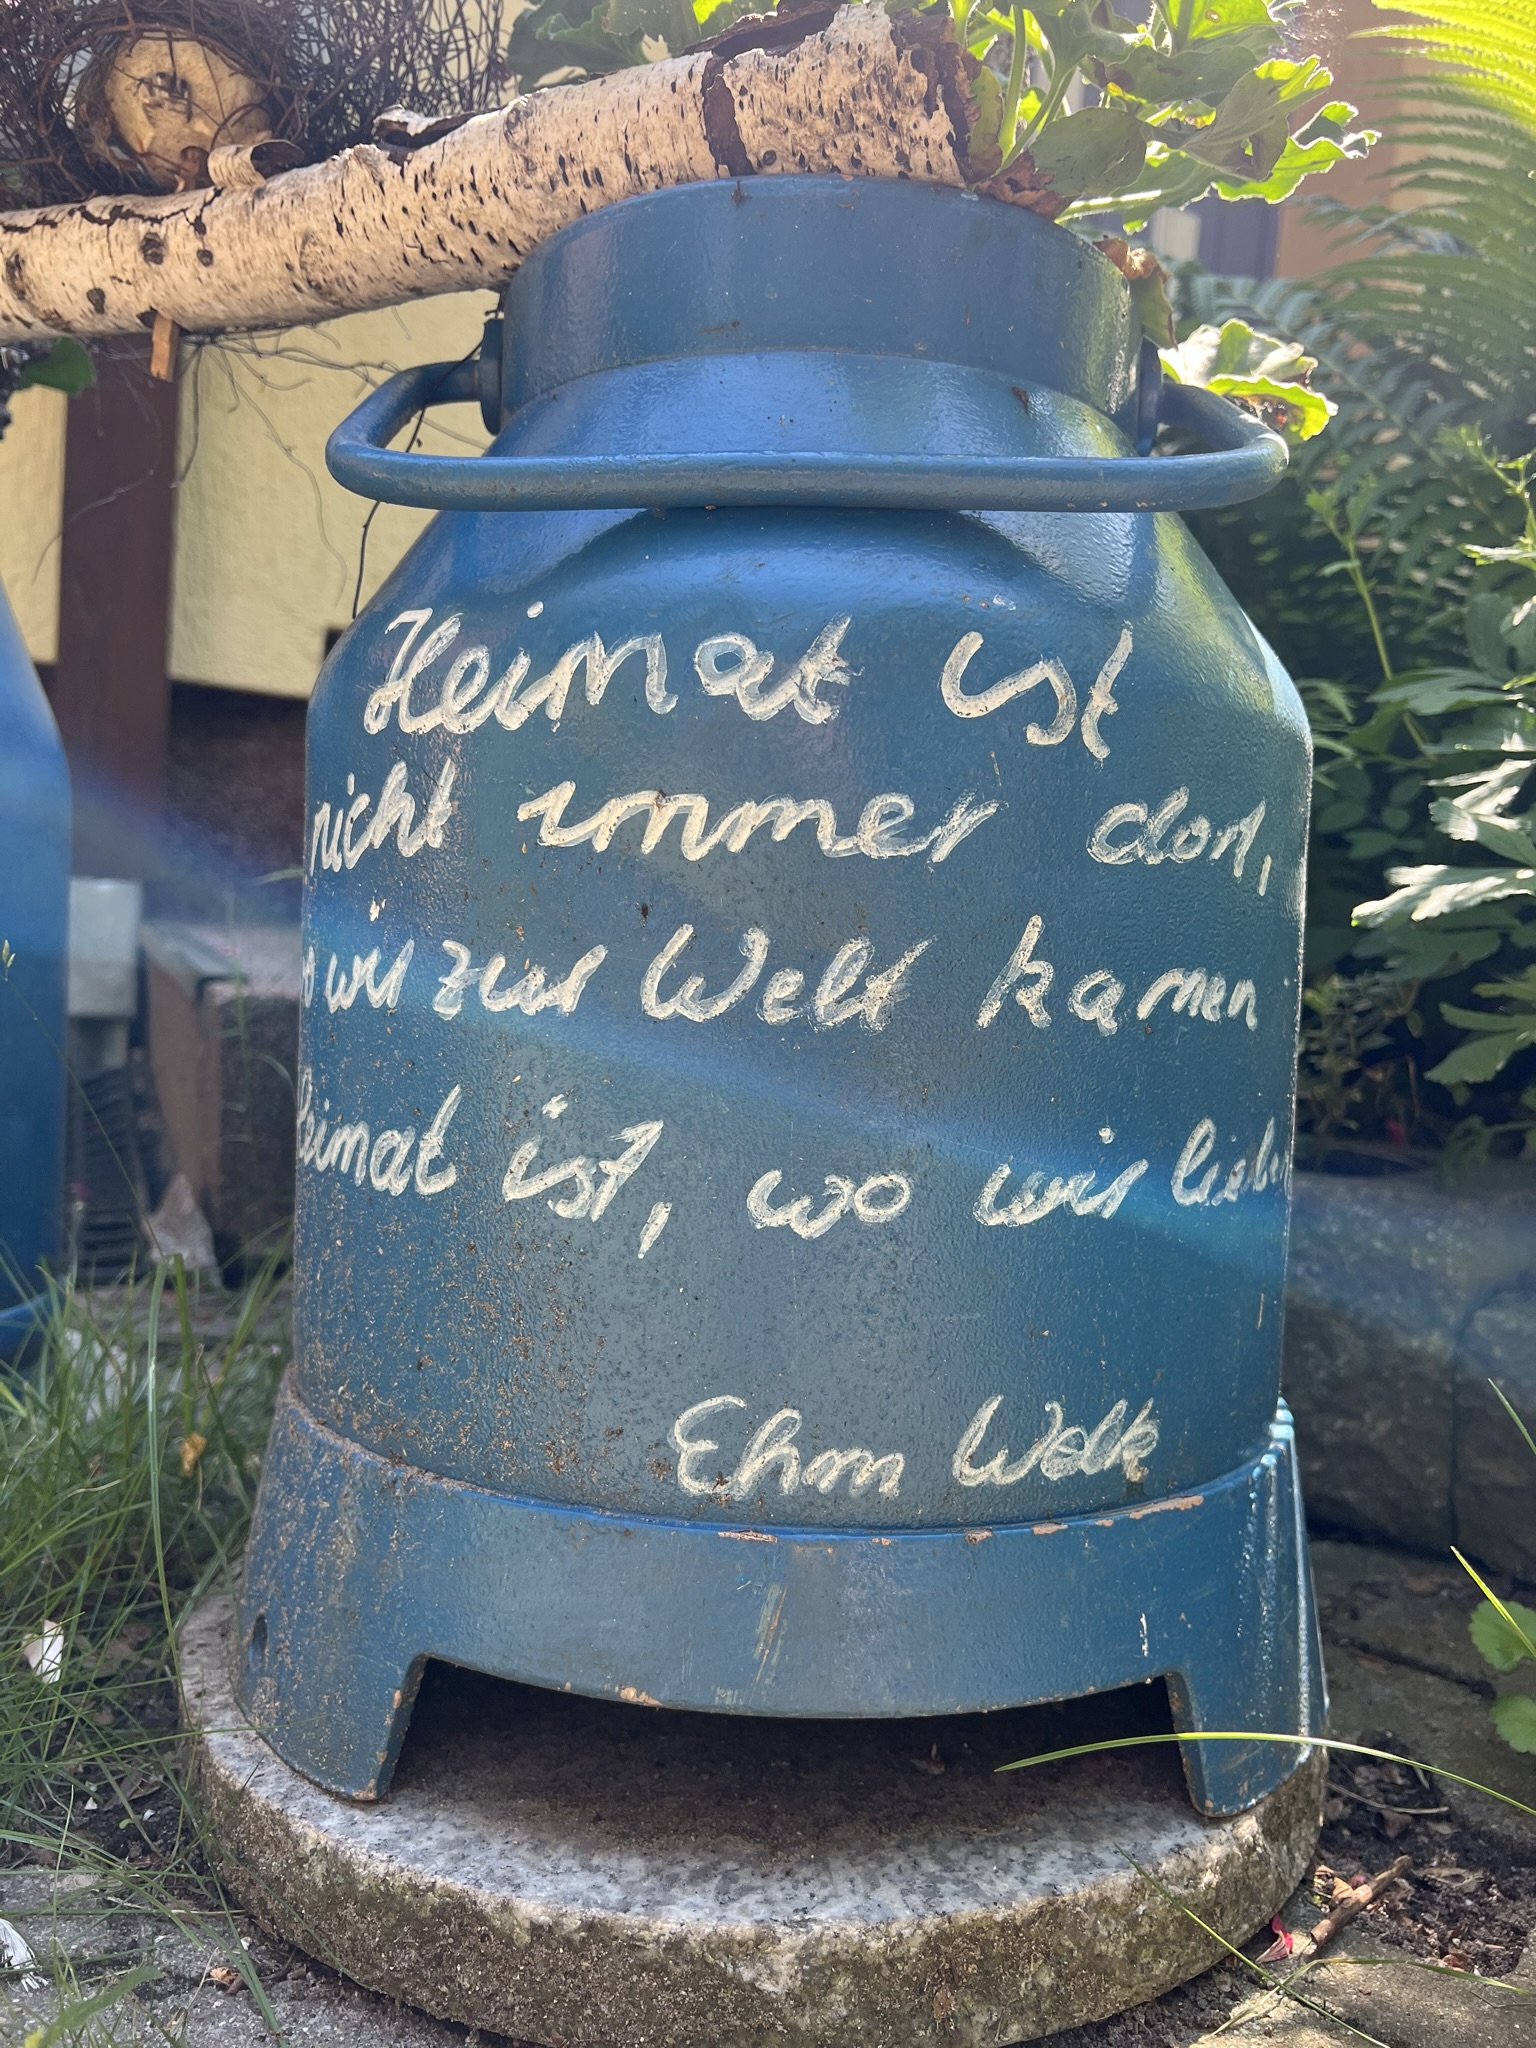 Heimat ist
nicht immer dort,
wir zur Welt kamen
Heimat ist, wo wir lieben
Ehm Welk